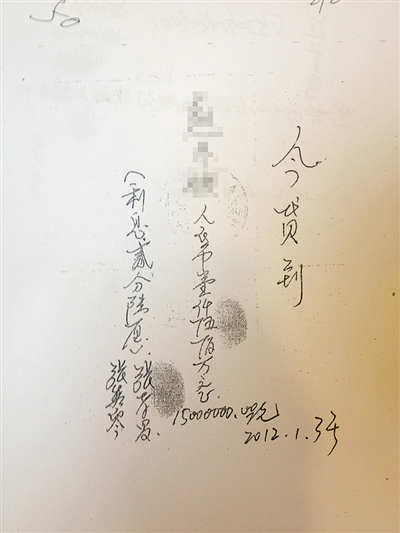 50
今贷到
人民币壹仟伍佰万元
15000000.00元
2012.1.3号
(利息贰分陆厘)
张
张